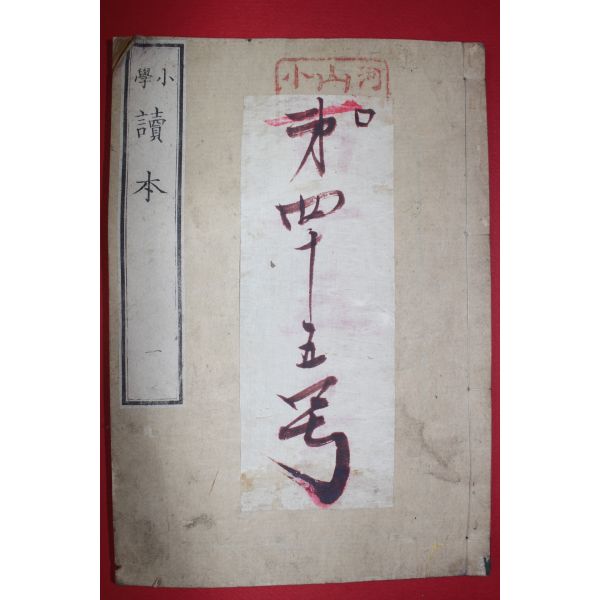 河山小
ロ
第四十五号
小學讀本 一